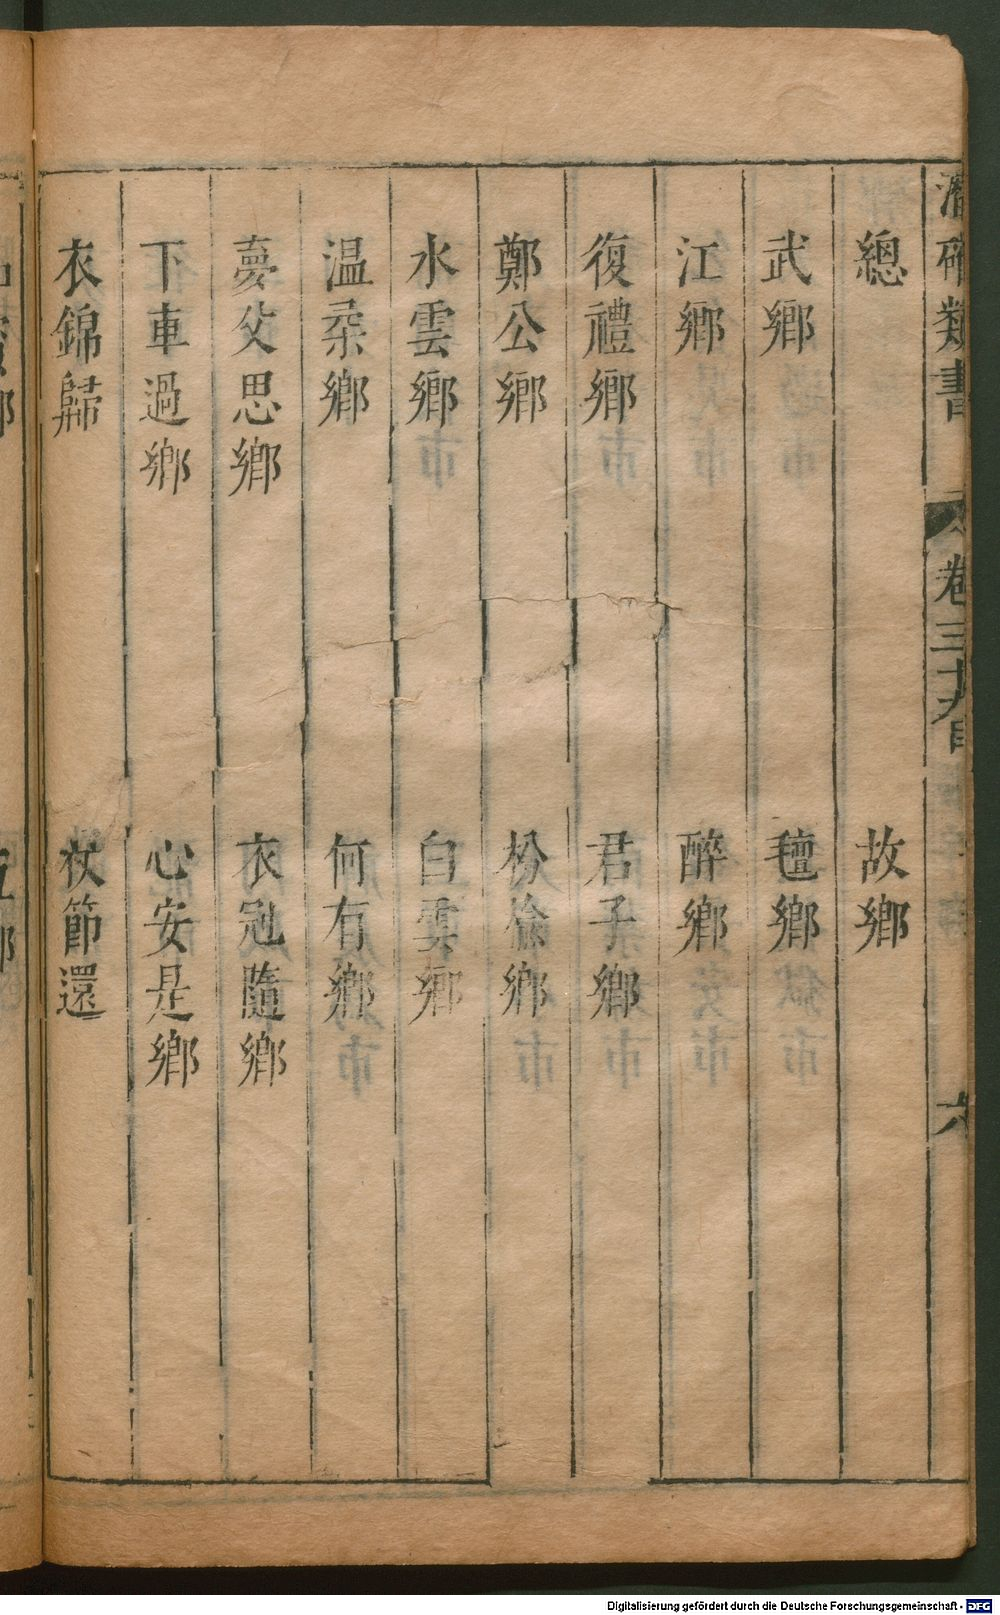 潛確類書 卷三十九目 六
總 故鄉
武鄉 氊鄉
江鄉 醉鄉
復禮鄉 君子鄉
鄭公鄉 枌榆鄉
水雲鄉 白雲鄉
温柔鄉 何有鄉
夢父思鄉 衣冠隨鄉
下車過鄉 心安是鄉
衣錦歸 杖節還
Digitalisierung gefördert durch die Deutsche Forschungsgemeinschaft - DFG